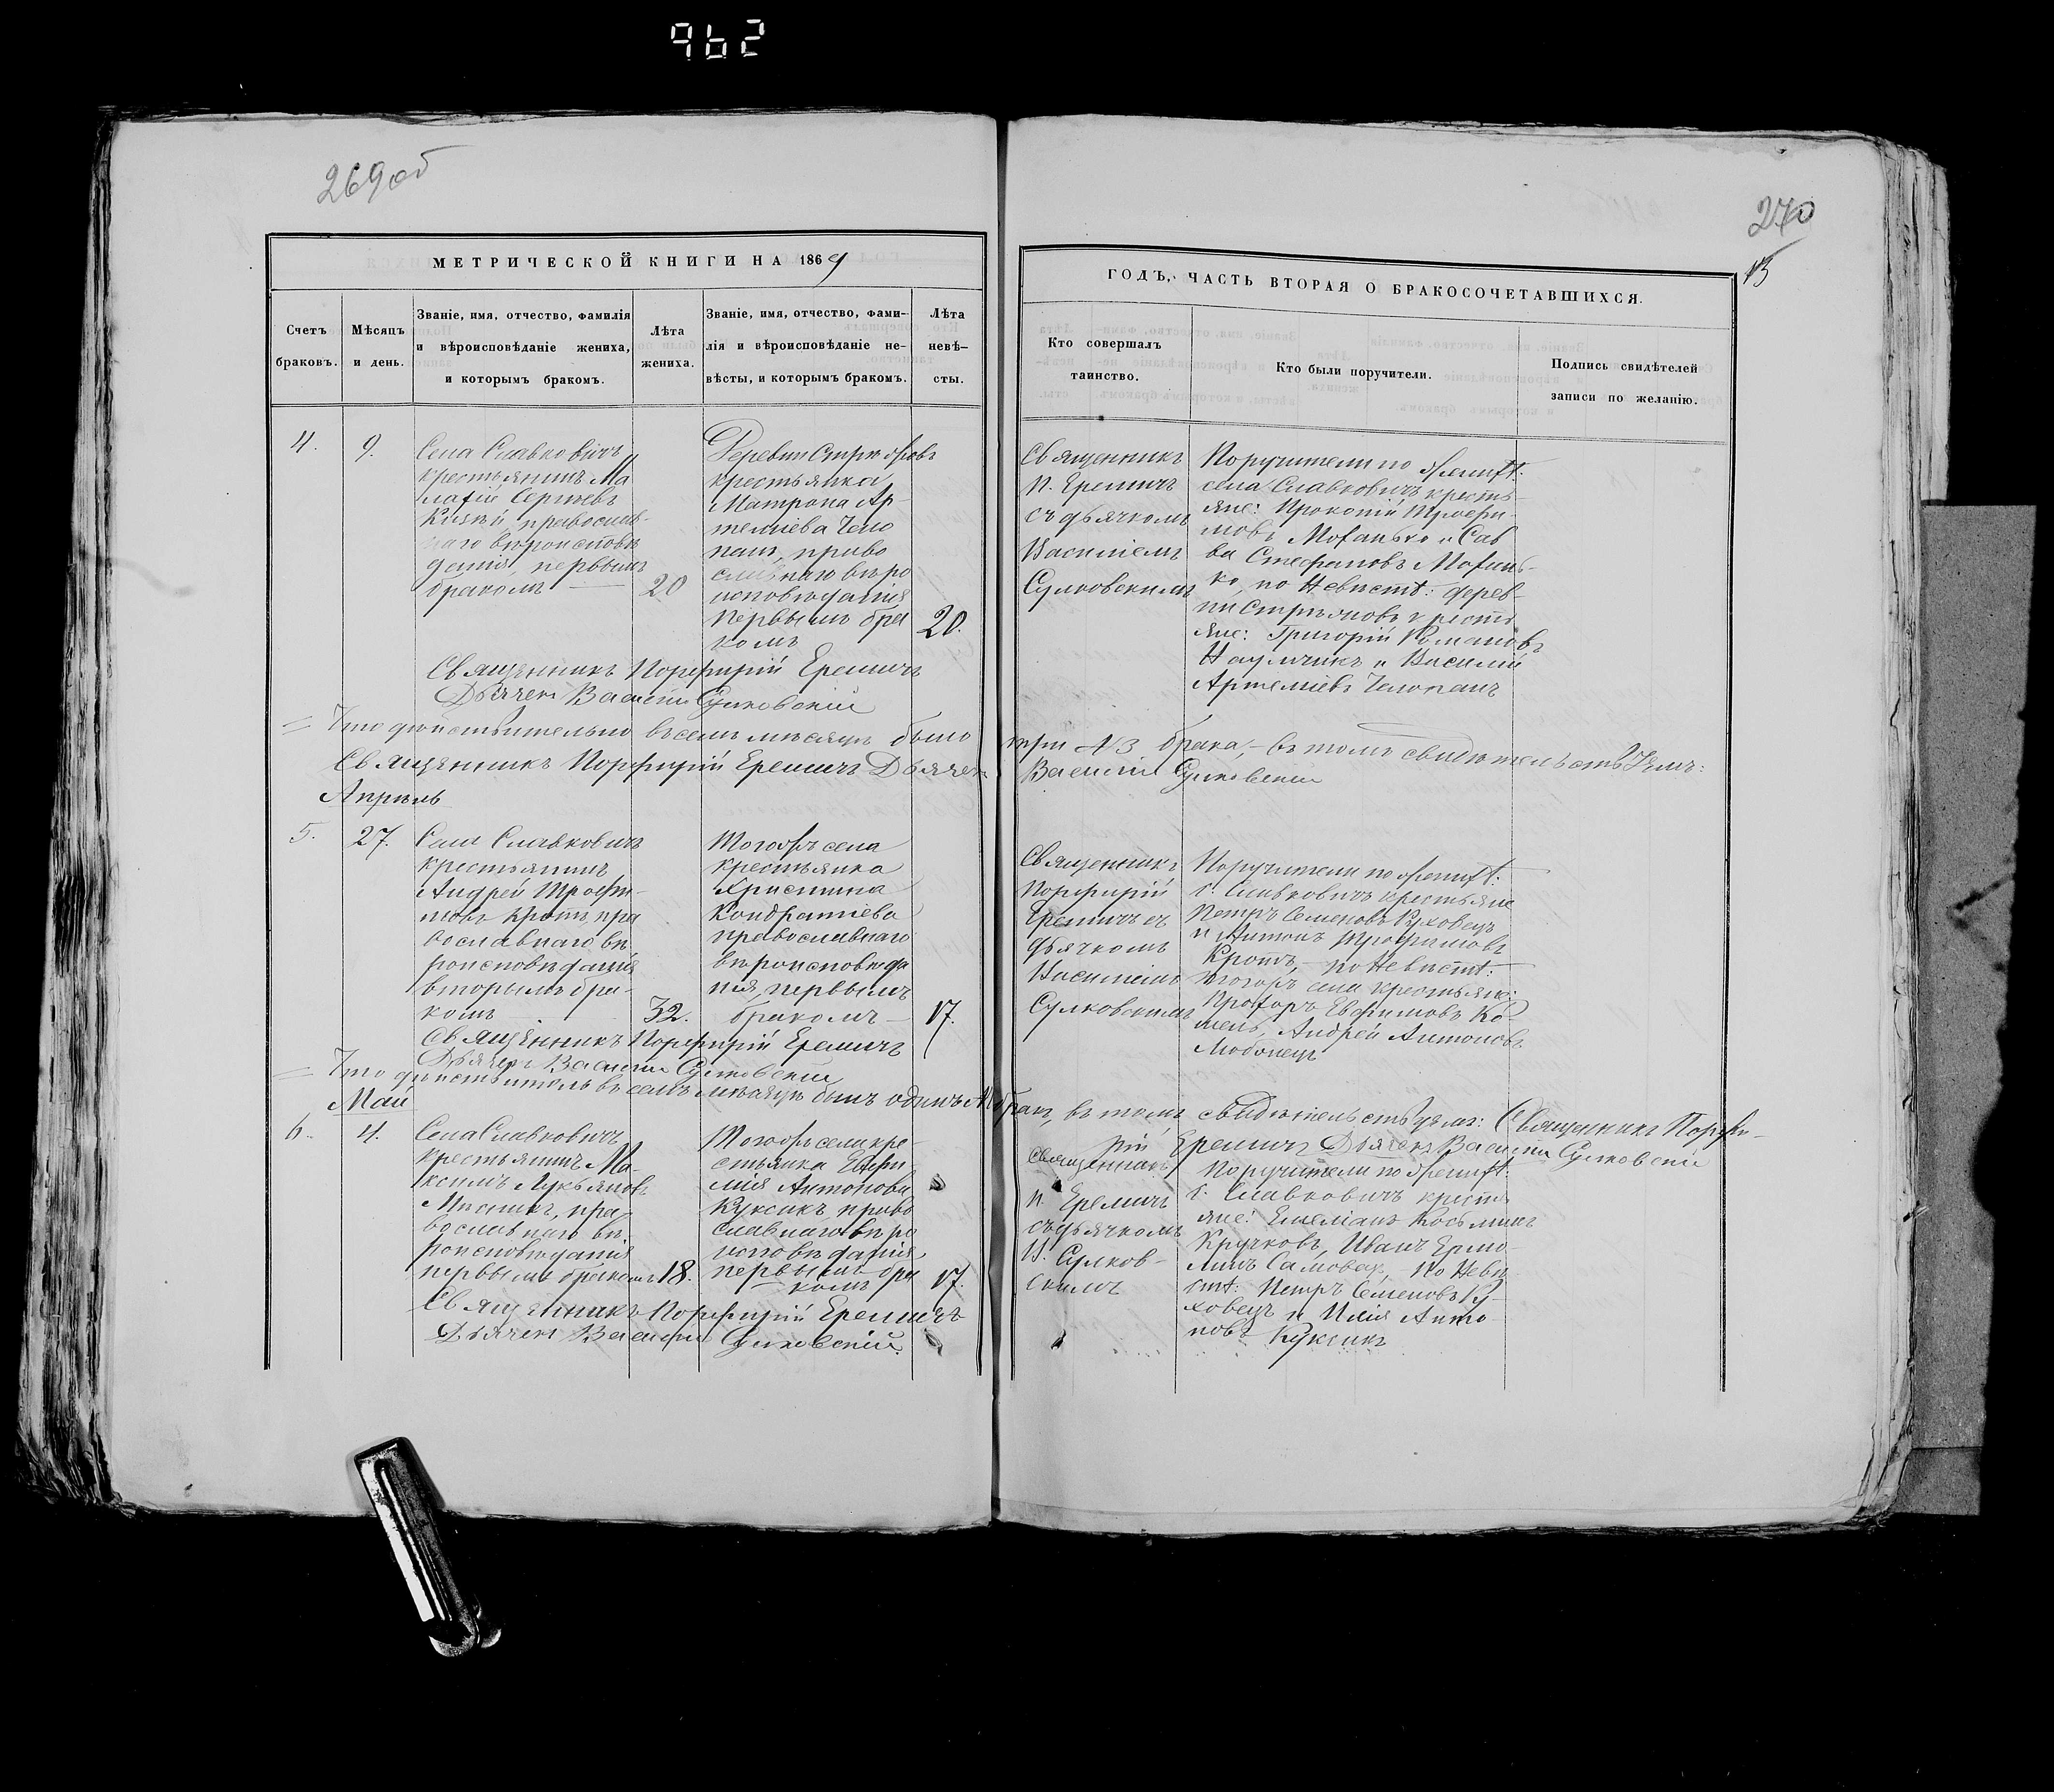 962
269об
270
13
МЕТРИЧЕСКОЙ КНИГИ НА 1869
ГОДЪ, ЧАСТЬ ВТОРАЯ О БРАКОСОЧЕТАВШИХСЯ.
Счетъ
браковъ.
Мѣсяцъ
и день.
Званіе, имя, отчество, фамилія
и вѣроисповѣданіе жениха,
и которымъ бракомъ.
Лѣта
жениха.
Званіе, имя, отчество, фами-
лія и вѣроисповѣданіе не-
вѣсты, и которымъ бракомъ.
Лѣта
невѣ-
сты.
Кто совершалъ
таинство.
Кто были поручители.
Подпись свидѣтелей
записи по желанію.
4.
9.
Села Славковичъ
крестьянинъ Ма
лафій Сергѣевъ
православ-
наго вѣроисповѣ
данія, первымъ
бракомъ
20
Деревни
крестьянка
Матрона Ар-
темиева Чело
панъ, право
славнаго вѣро
исповѣданія
первымъ бра
комъ
20.
Священникъ
П. Еремичъ
съ дьячкомъ
Василіемъ
Сулковскимъ
Поручители по
села Славковичъ кресть-
яне: Прокопій Трофи-
мовъ и Сав
ва Стефановъ
ко, по Невѣстѣ: дерев-
ни кресть
яне: Григорій Романовъ
Наумчикъ и Василій
Артеміевъ Челопанъ
Священникъ Порфирій Еремичъ
Дьячекъ Василій Сулковскій
= Что дѣйствительно въ семъ мѣсяцѣ было три №3 брака, - въ томъ свидѣтельствуемъ:
Священникъ Порфирій Еремичъ Дьячекъ Василій Сулковскій
Апрѣль
5.
27.
Села Славковичъ
крестьянинъ
Андрей Трофи-
мовъ Кротъ, пра
вославнаго вѣ
роисповѣданія
вторымъ бра-
комъ
32.
Тогожъ села
крестьянка
Христина
Кондратіева
православнаго
вѣроисповѣда
нія, первымъ
бракомъ
17.
Священникъ
Порфирій
Еремичъ съ
дьячкомъ
Василіемъ
Сулковскимъ
Поручители по
с. Славковичъ крестьяне
Петръ Семеновъ Куховецъ
и Антонъ Трофимовъ
Кротъ, - по Невѣстѣ:
тогожъ села крестьяне:
Прохоръ Евфимовъ Ко-
Андрей Антоновъ
Священникъ Порфирій Еремичъ
Дьячекъ Василій Сулковскій
= Что дѣйствитель въ семъ мѣсяцѣ былъ одинъ №1 бракъ, въ томъ свидѣтельствуемъ: Священникъ Порфи-
рій Еремичъ Дьячекъ Василій Сулковскій
Май
6.
4.
Села Славковичъ
крестьянинъ Ма-
ксимъ Лукьяновъ
пра-
вославнаго вѣ
роисповѣданія
первымъ бракомъ
18.
Тогожъ села кре-
стьянка Евфи
мія Антонова
Куксикъ право
славнаго вѣро
исповѣданія
первымъ бра
комъ
17.
Священникъ
П. Еремичъ
съ дьячкомъ
В. Сулков-
скимъ
Поручители по
с. Славковичъ кресть
яне: Емеліанъ Косьминъ
Кручковъ, Иванъ Ермо-
по Невѣ
стѣ: Петръ Семеновъ Ку-
ховецъ и Илія Анто
новъ Куксикъ
Священникъ Порфирій Еремичъ
Дьячекъ Василій Сулковскій.